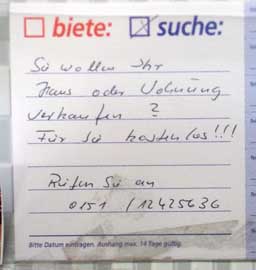 biete: suche:
Sie wollen Ihr
Haus oder Wohnung
verkaufen ?
Für Sie kostenlos!!!
Rufen Sie an
0151 / 12425636
Bitte Datum eintragen. Aushang max. 14 Tage gültig.